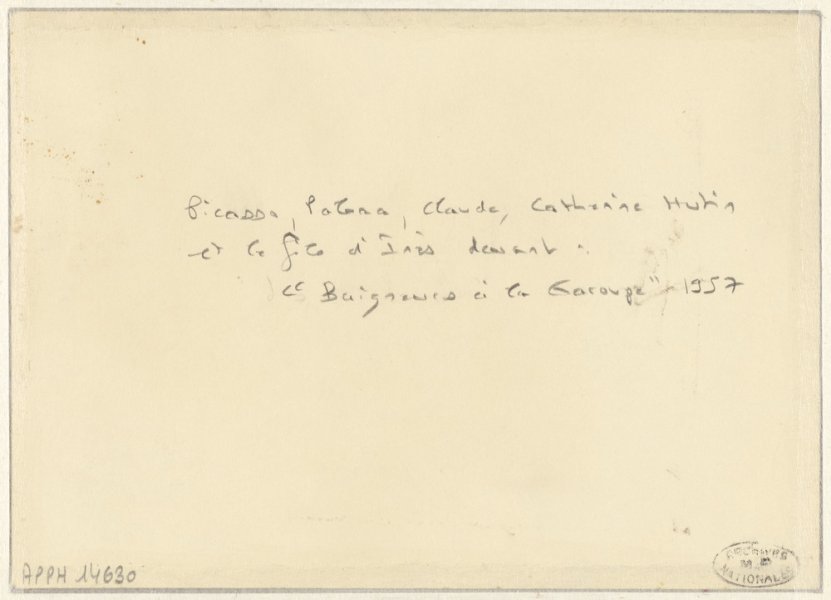 Picasso, Paloma, Claude, Catherine Hutin
et le fils d'Inès devant :
"Baigneurs à la Garoupe" - 1957
APPH 14630
ARCHIVES
NATIONALES